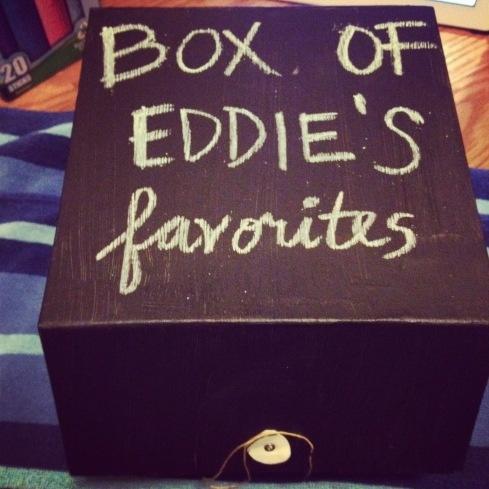 BOX OF
EDDIE'S
favorites
20